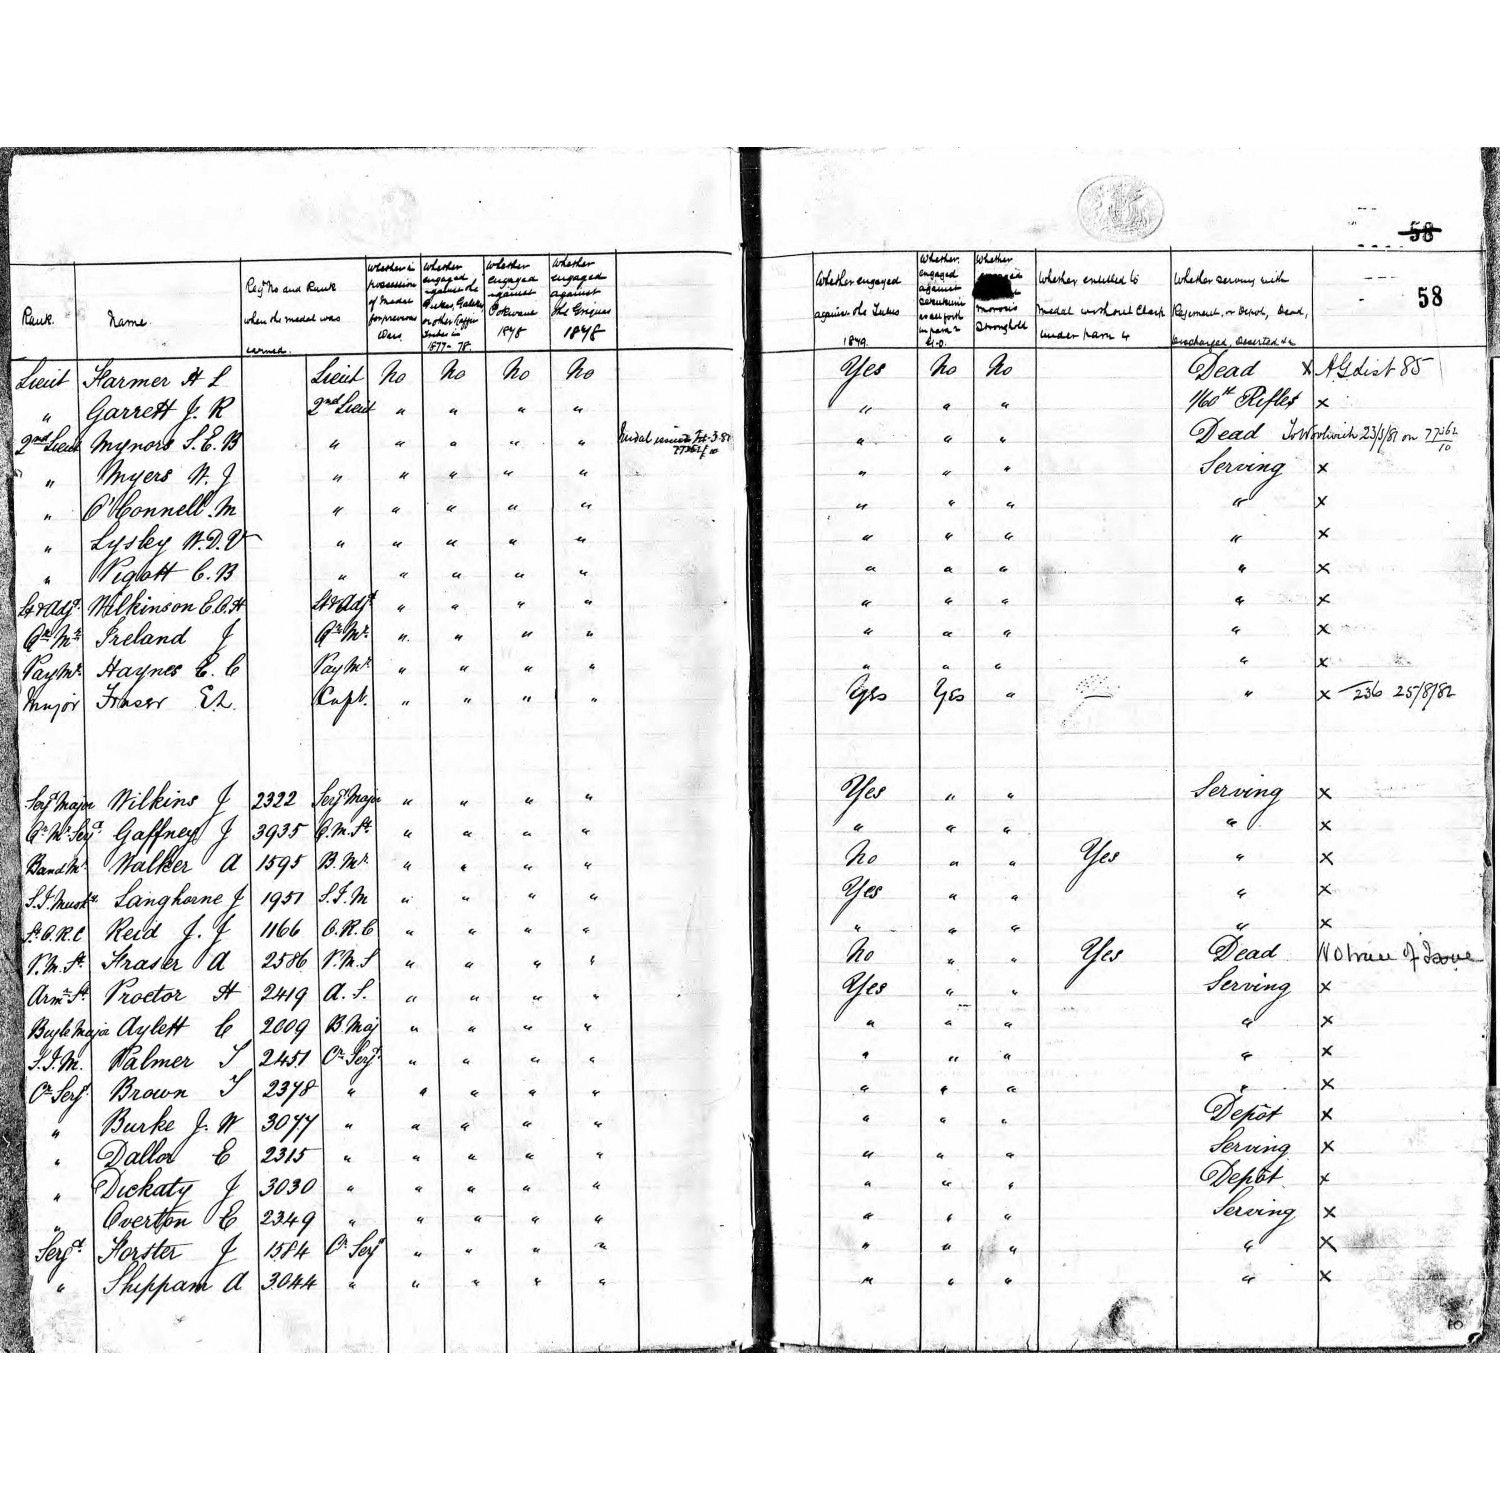 58
58
Rank. Name. Regt No and Rank when the medal was earned. Whether in possession of Medal for previous Wars. Whether engaged against the Gaikas, or other Kaffir Tribes in 1877-78. Whether engaged against Pokwane 1878 Whether engaged against the Griquas 1878 Whether engaged against the Zulus 1879. Whether engaged against Sekukuni as set forth in para 2 G.O. Whether Moirosi's Stronghold Whether entitled to Medal without Clasp under para 4 Whether serving with Regiment, or Depot, Dead, Discharged, Deserted &c
Lieut Harmer H L Lieut No No No No Yes No No Dead x AG dist 85
" Garrett J. R 2nd Lieut " " " " " " " 1/60th Rifles x
2nd Lieut Mynors S. E. B " " " " " Medal issued 3.81 77362/10 " " " Dead To Woolwich 23/3/81 on 77362/10
" Myers W. J " " " " " " " " Serving x
" O'Connell. M " " " " " " " " " x
" Lysley W. D. V " " " " " " " " " x
" Pigott C. B " " " " " " " " " x
Lt & Adjt. Wilkinson E. O. H Lt & Adjt " " " " " " " " x
Qr Mr Ireland J Qr Mr. " " " " " " " " x
Pay Mr. Haynes E. C Pay Mr. " " " " " " " " x
Major Fraser E L. Capt. " " " " Yes Yes " " x 236 25/8/82
Serjt Major Wilkins J 2322 Serjt Major " " " " Yes " " Serving x
Qr Mr Serjt Gaffney J 3935 Q. M. St. " " " " " " " " x
Band Mr Walker A 1595 B. Mr. " " " " No " " Yes " x
S. I. Musky. Langhorne J 1951 S. I. M " " " " Yes " " " x
St O. R. C Reid J. J 1166 O. R. C " " " " " " " " x
P. M. St. Fraser A 2586 P. M. S " " " " No " " Yes Dead No trace of Issue
Armr St. Proctor H 2419 A. S. " " " " Yes " " Serving x
Bugle Major Aylett C 2009 B. Maj " " " " " " " " x
F. I. M. Palmer T 2451 Cr Serjt. " " " " " " " " x
Cr Serjt Brown T 2378 " " " " " " " " " x
" Burke J. W 3077 " " " " " " " " Depôt x
" Dallor E 2315 " " " " " " " " Serving x
" Dickaty J 3030 " " " " " " " " Depôt x
" Overton E 2349 " " " " " " " " Serving x
Serjt. Forster J 1584 Cr Serjt " " " " " " " " x
" Shippam A 3044 " " " " " " " " " x